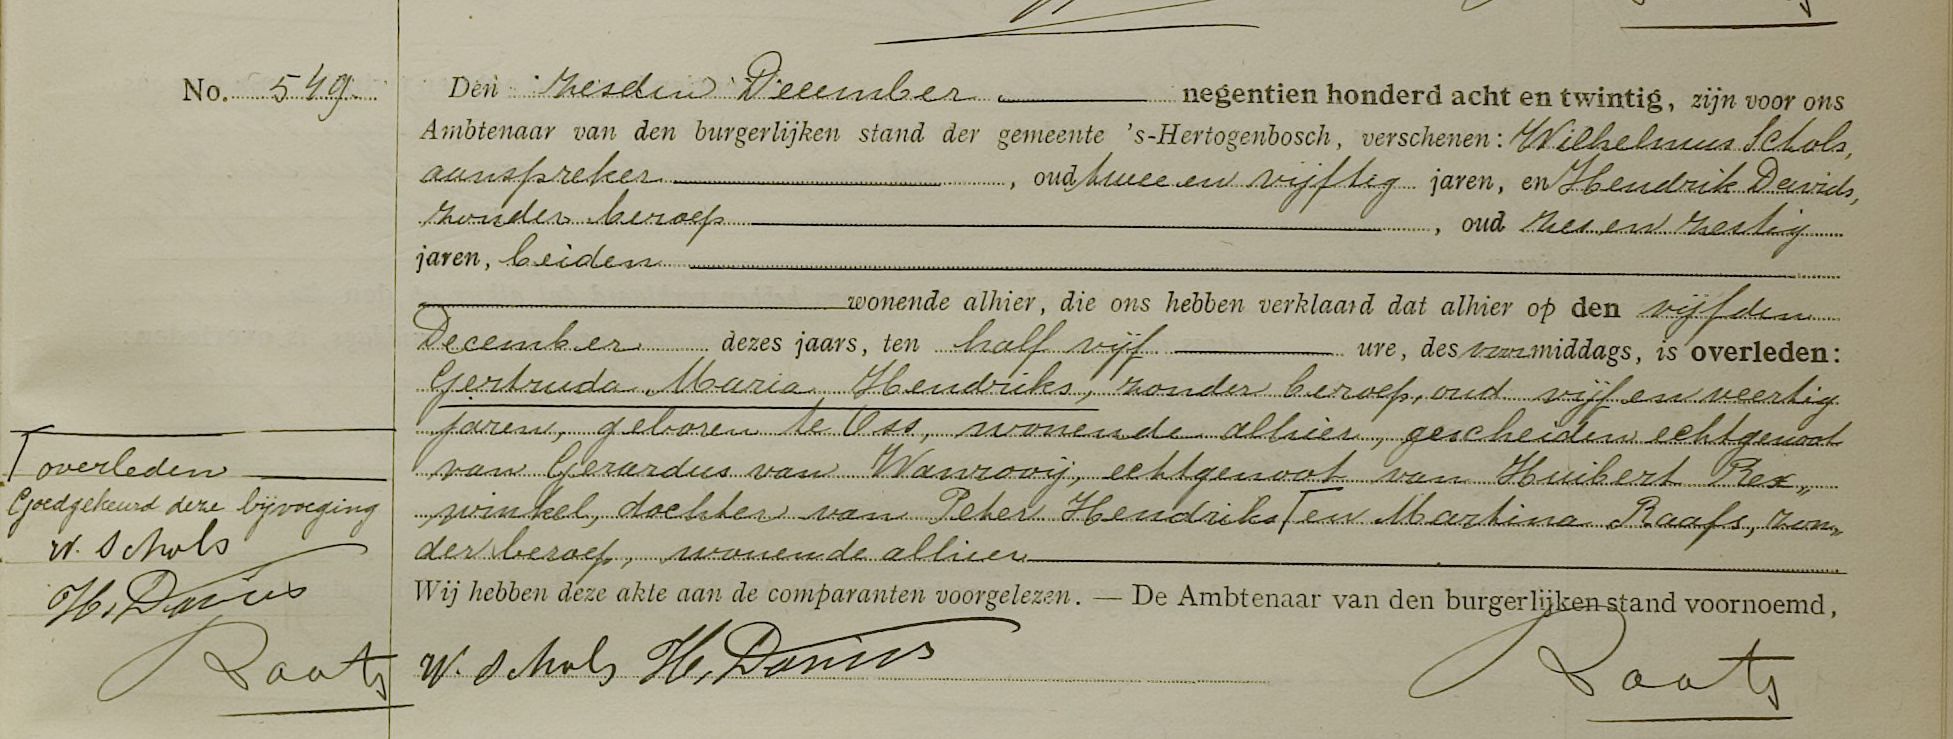 No. 549.
Den zesden December negentien honderd acht en twintig, zijn voor ons
Ambtenaar van den burgerlijken stand der gemeente 's-Hertogenbosch, verschenen: Wilhelmus Schols,
aanspreker, oud twee en vijftig jaren, en Hendrik Davids,
zonder beroep, oud zes en zestig
jaren, beiden
wonende alhier, die ons hebben verklaard dat alhier op den vijfden
December dezes jaars, ten half vijf ure, des voormiddags, is overleden:
Gertruda Maria Hendriks, zonder beroep, oud vijf en veertig
jaren, geboren te Oss, wonende alhier, gescheiden echtgenoot
van Gerardus van Wanrooij, echtgenoot van Huibert Rex„
winkel, dochter van Peter Hendriks ⌈ en Martina Raafs, zon„
der beroep, wonende alhier
⌈ overleden
Goedgekeurd deze bijvoeging
W. Schols
H. Davids
Raats
Wij hebben deze akte aan de comparanten voorgelezen. — De Ambtenaar van den burgerlijken stand voornoemd,
W. Schols H. Davids Raats